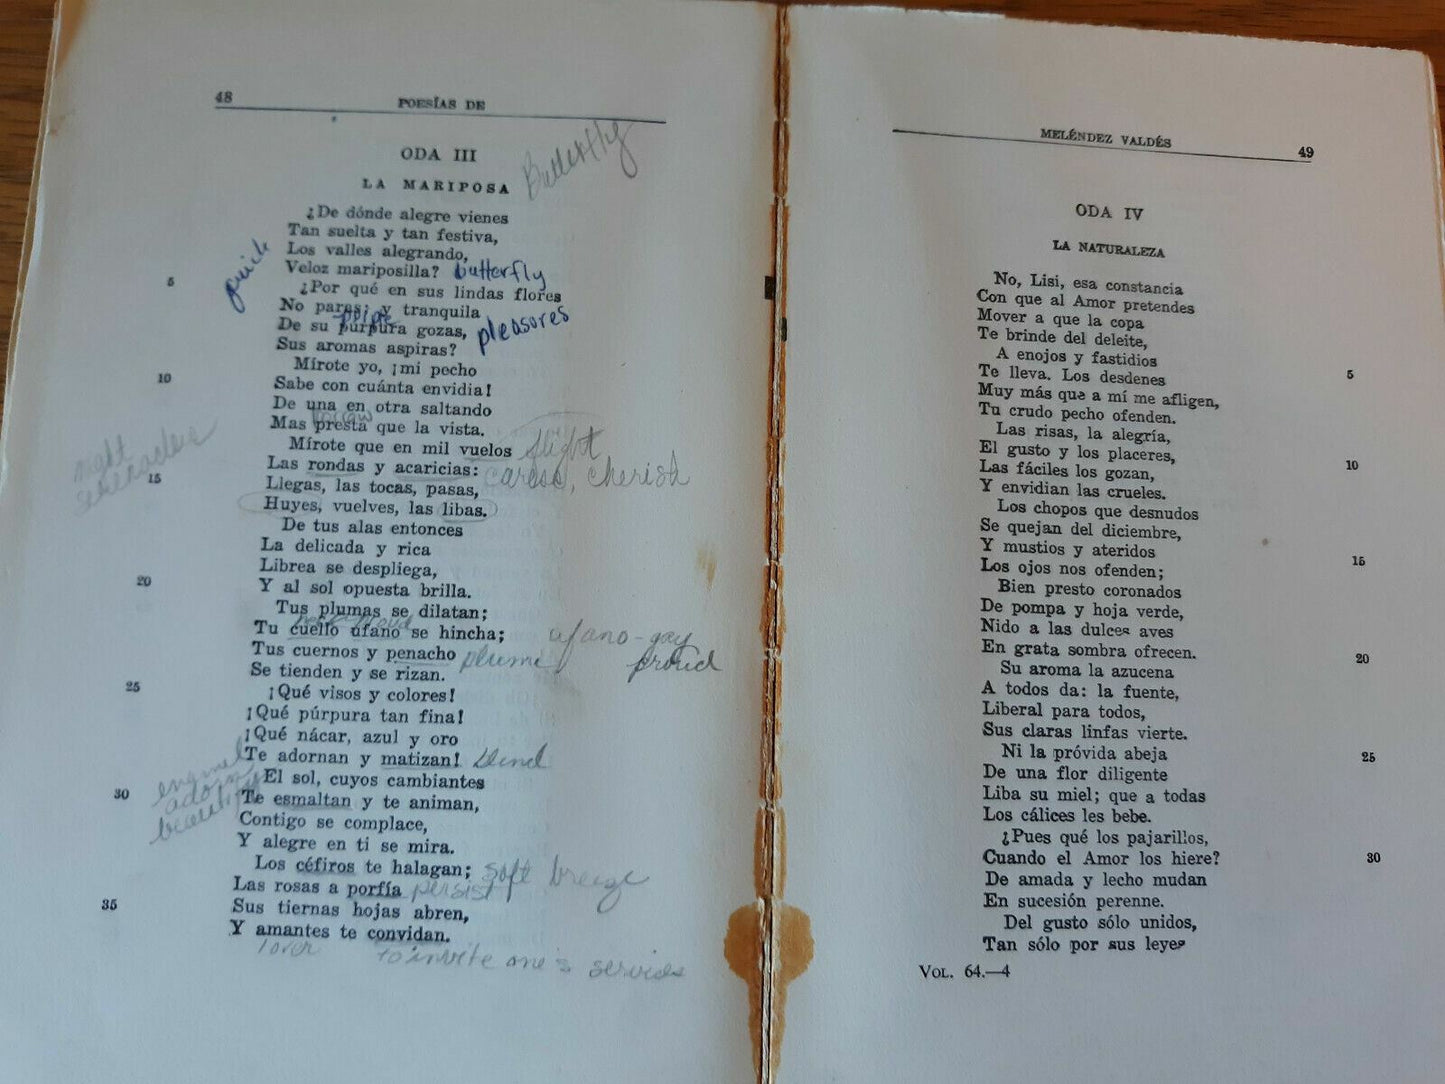 48
POESÍAS DE
ODA III
Butterfly
LA MARIPOSA
¿De dónde alegre vienes
Tan suelta y tan festiva,
Los valles alegrando,
quick
Veloz mariposilla? butterfly
5
¿Por qué en sus lindas flores
No paras; y tranquila
De su púrpura gozas, pleasores
Sus aromas aspiras?
Mírote yo, ¡mi pecho
10
Sabe con cuánta envidia!
De una en otra saltando
Mas presta que la vista.
Mírote que en mil vuelos flight
Las rondas y acaricias: caress, cherish
night
15
Llegas, las tocas, pasas,
Huyes, vuelves, las libas.
De tus alas entonces
La delicada y rica
Librea se despliega,
20
Y al sol opuesta brilla.
Tus plumas se dilatan;
Tu cuello ufano se hincha; ufano-gay
proud
Tus cuernos y penacho plume
Se tienden y se rizan.
25
¡Qué visos y colores!
¡Qué púrpura tan fina!
¡Qué nácar, azul y oro
Te adornan y matizan! blend
El sol, cuyos cambiantes
enamel
adorn
beautify
30
Te esmaltan y te animan,
Contigo se complace,
Y alegre en ti se mira.
Los céfiros te halagan; soft breeze
Las rosas a porfía persist
35
Sus tiernas hojas abren,
Y amantes te convidan.
lover
to invite one's services
MELÉNDEZ VALDÉS
49
ODA IV
LA NATURALEZA
No, Lisi, esa constancia
Con que al Amor pretendes
Mover a que la copa
Te brinde del deleite,
A enojos y fastidios
5
Te lleva. Los desdenes
Muy más que a mí me afligen,
Tu crudo pecho ofenden.
Las risas, la alegría,
El gusto y los placeres,
10
Las fáciles los gozan,
Y envidian las crueles.
Los chopos que desnudos
Se quejan del diciembre,
Y mustios y ateridos
15
Los ojos nos ofenden;
Bien presto coronados
De pompa y hoja verde,
Nido a las dulces aves
En grata sombra ofrecen.
20
Su aroma la azucena
A todos da: la fuente,
Liberal para todos,
Sus claras linfas vierte.
Ni la próvida abeja
25
De una flor diligente
Liba su miel; que a todas
Los cálices les bebe.
¿Pues qué los pajarillos,
Cuando el Amor los hiere?
30
De amada y lecho mudan
En sucesión perenne.
Del gusto sólo unidos,
Tan sólo por sus leyes
VOL. 64.—4